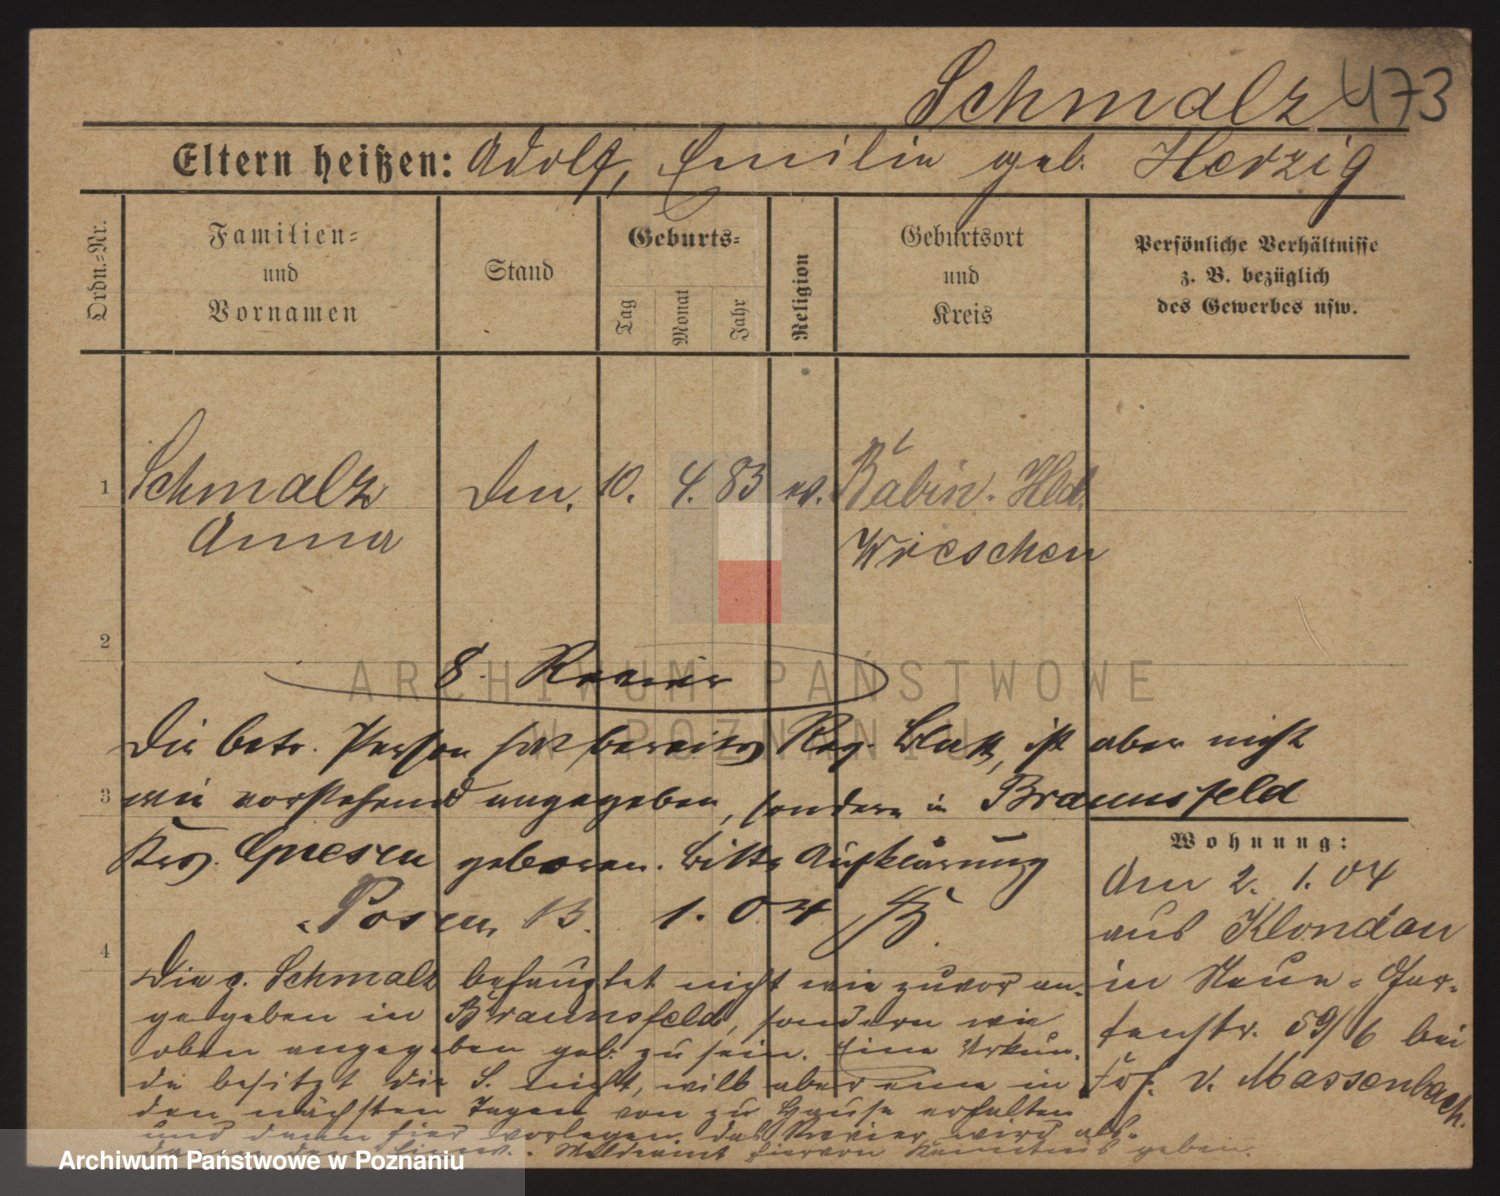 Schmalz 473
Eltern heißen: Adolf, Emilie geb. Herzig
Ordn.-Nr.
Familien-
und
Vornamen
Stand
Geburts-
Tag
Monat
Jahr
Religion
Geburtsort
und
Kreis
Persönliche Verhältnisse
z. B. bezüglich
des Gewerbes usw.
1 Schmalz 10. 4. 83 ev. Babin. Hld.
Anna Wreschen
2
8. Revier
Die betr. Person hat bereits Reg. Blatt, ist aber nicht
3 wie vorstehend angegeben, sondern in Braunsfeld
Krs. Gnesen geboren. Bitte Aufklärung
Posen, 13. 1. 04
4
Die p. Schmalz behauptet nicht wie zuvor an-
gegeben in Braunsfeld, sondern wie
oben angegeben geb. zu sein. Eine Urkun-
de besitzt die S. nicht, will aber eine in
den nächsten Tagen von zu Hause erhalten
und dann hier vorlegen. Das Revier wird als-
Meldeamt hiervon Kenntnis geben.
Wohnung:
Am 2. 1. 04
aus Klondau
in Neue-Gar-
tenstr. 59/6 bei
v. Massenbach.
ARCHIWUM PAŃSTWOWE
W POZNANIU
Archiwum Państwowe w Poznaniu